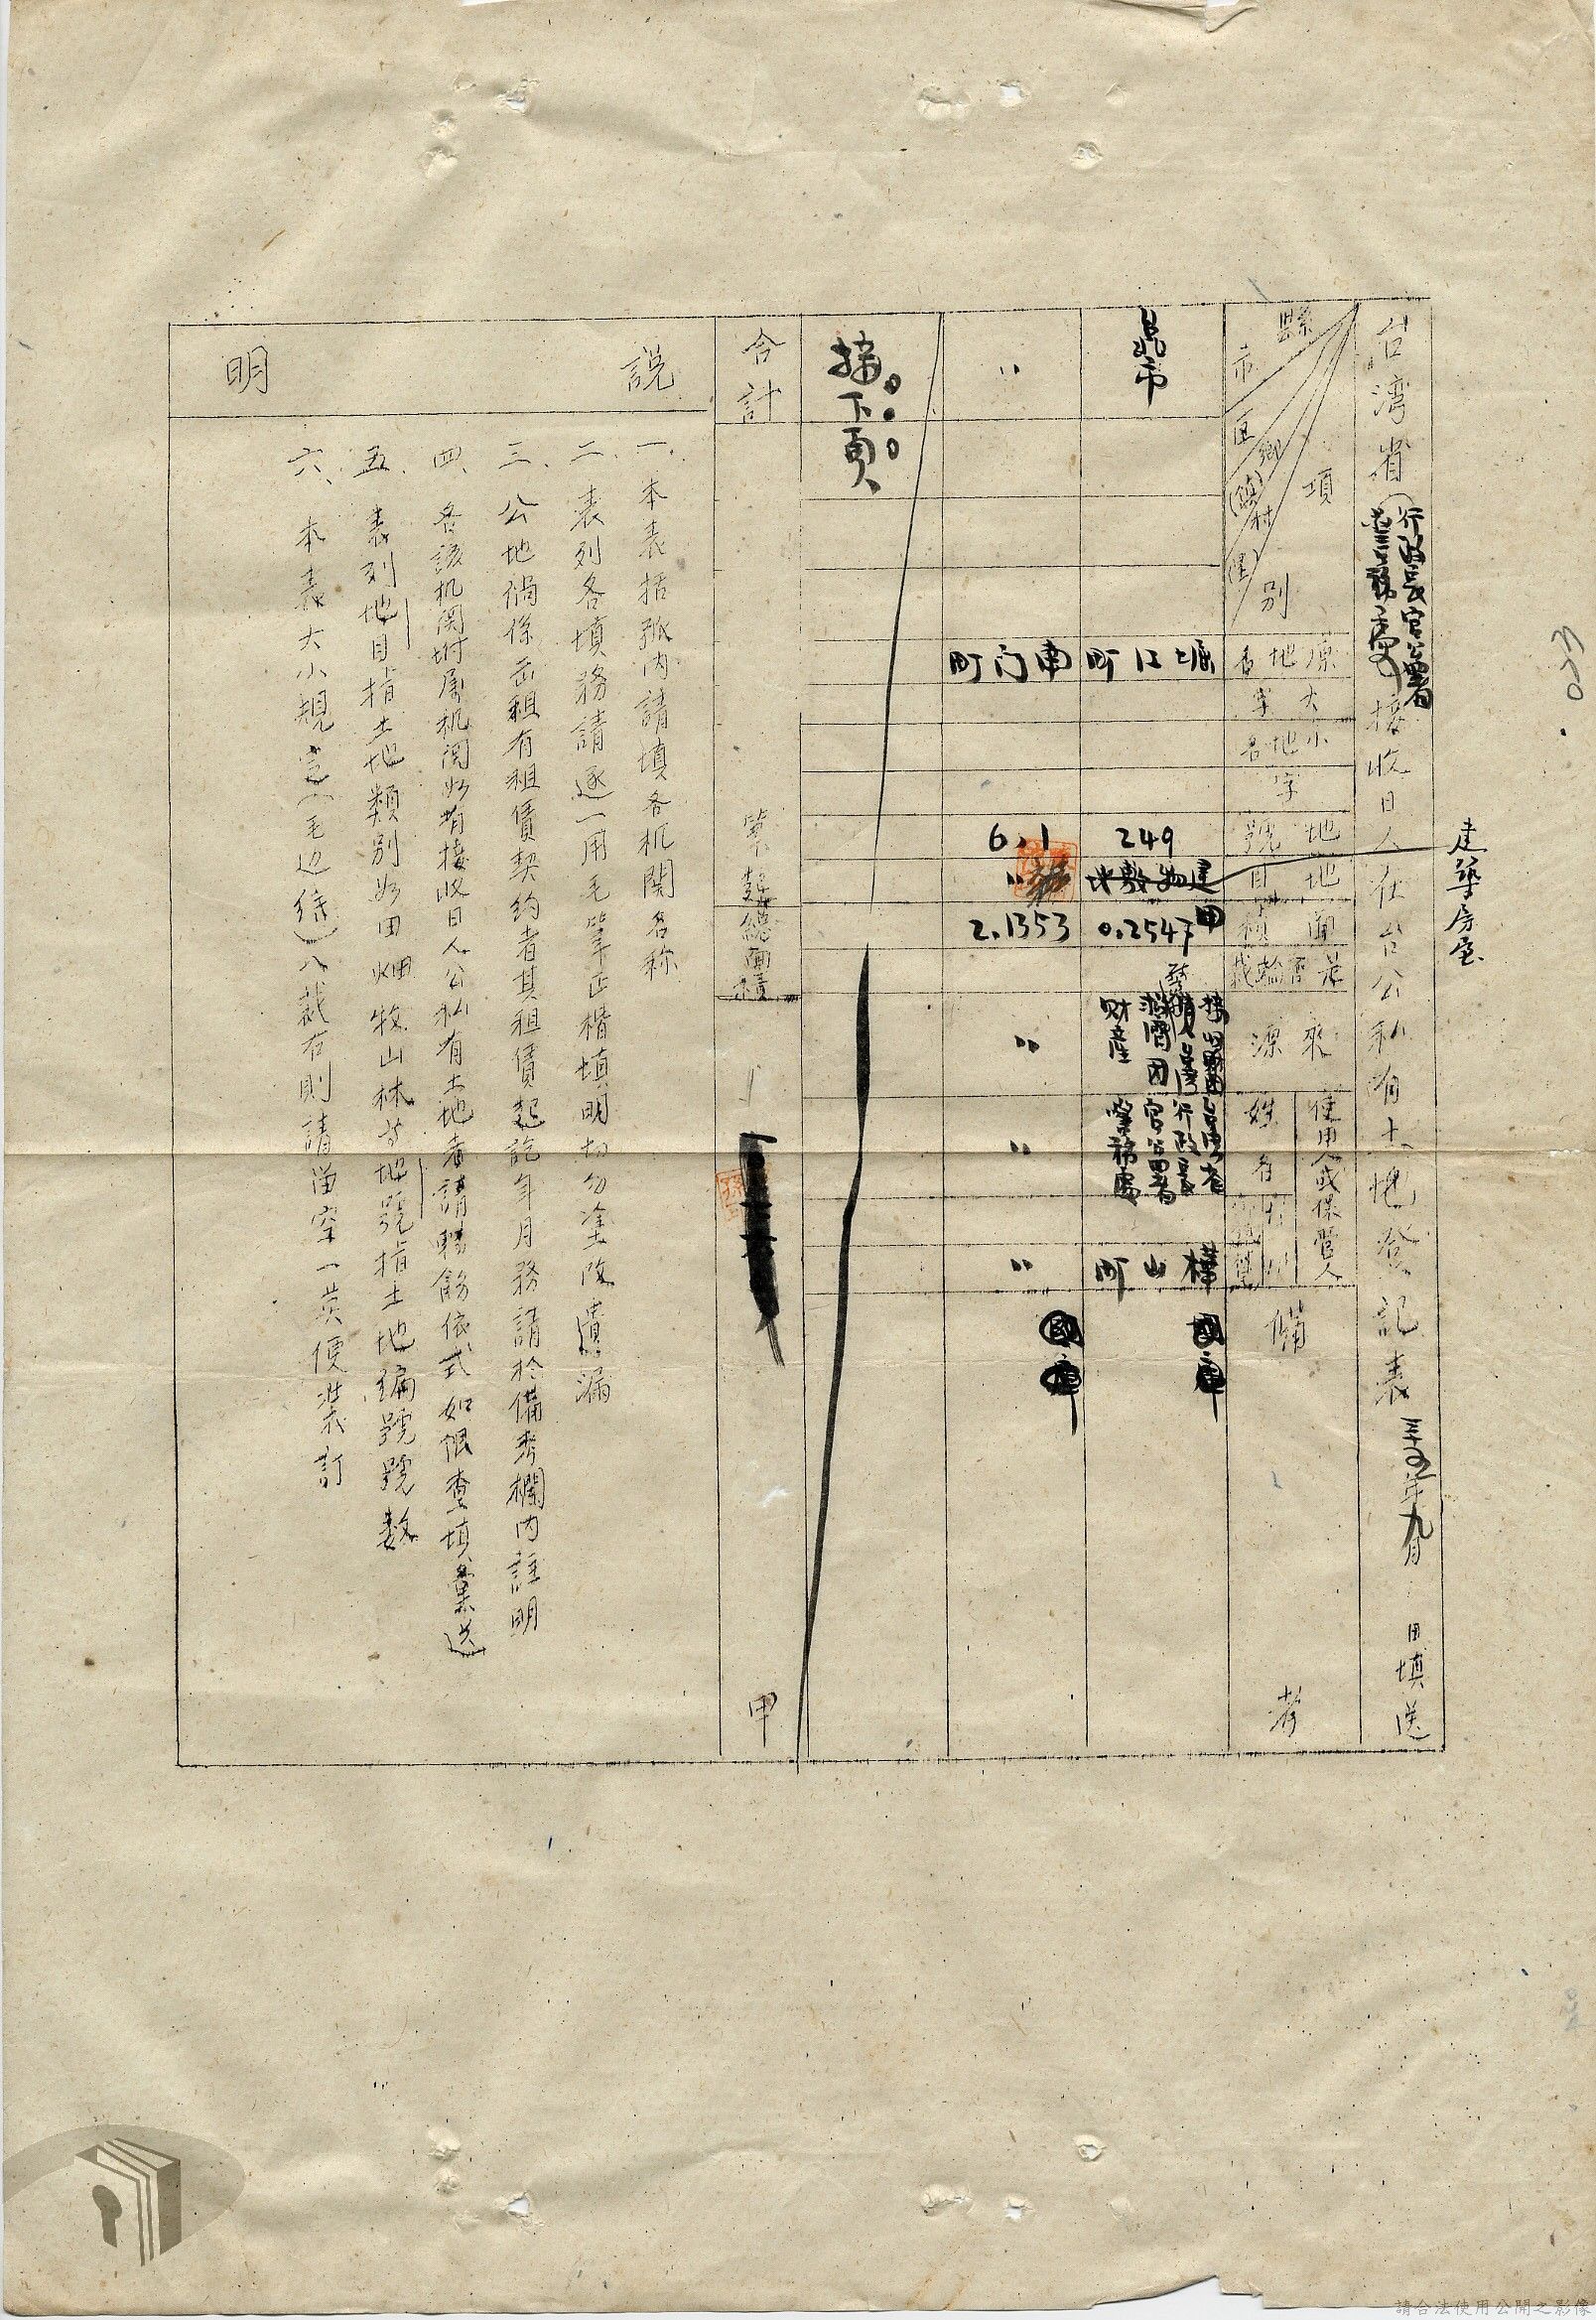 台湾省(行政長官公署警務處)接收日人在台公私有土地登記表 三十五年九月 日填送
建築房屋
縣市
區鄉(鎮)村(里)
項別
原地名
大字
小地名
字
地號
地目
面積
是否輪栽
來源
使用人或保管人
姓名
備考
台北市
堀江町
249
建物敷地
0.2547甲
財產
台灣省行政長官公署警務處
樺山町
國庫
〃
南门町
6.1
〃
2.1353
〃
〃
〃
國庫
接下頁
合計
筆起總面積
甲
説明
一、本表括弧内請填各机関名称
二、表列各填務請逐一用毛筆正楷填明切勿塗改遺漏
三、公地倘係出租有租賃契約者其租賃起訖年月務請於備考欄内註明
四、各該机関附屬机関如有接收日人公私有土地者請轉飭依式如限查填彙送
五、表列地目指土地類別如田畑牧山林等地號指土地編號號数
六、本表大小規定(毛边紙)八裁右則請留空一英便裝訂
請合法使用公開之影像